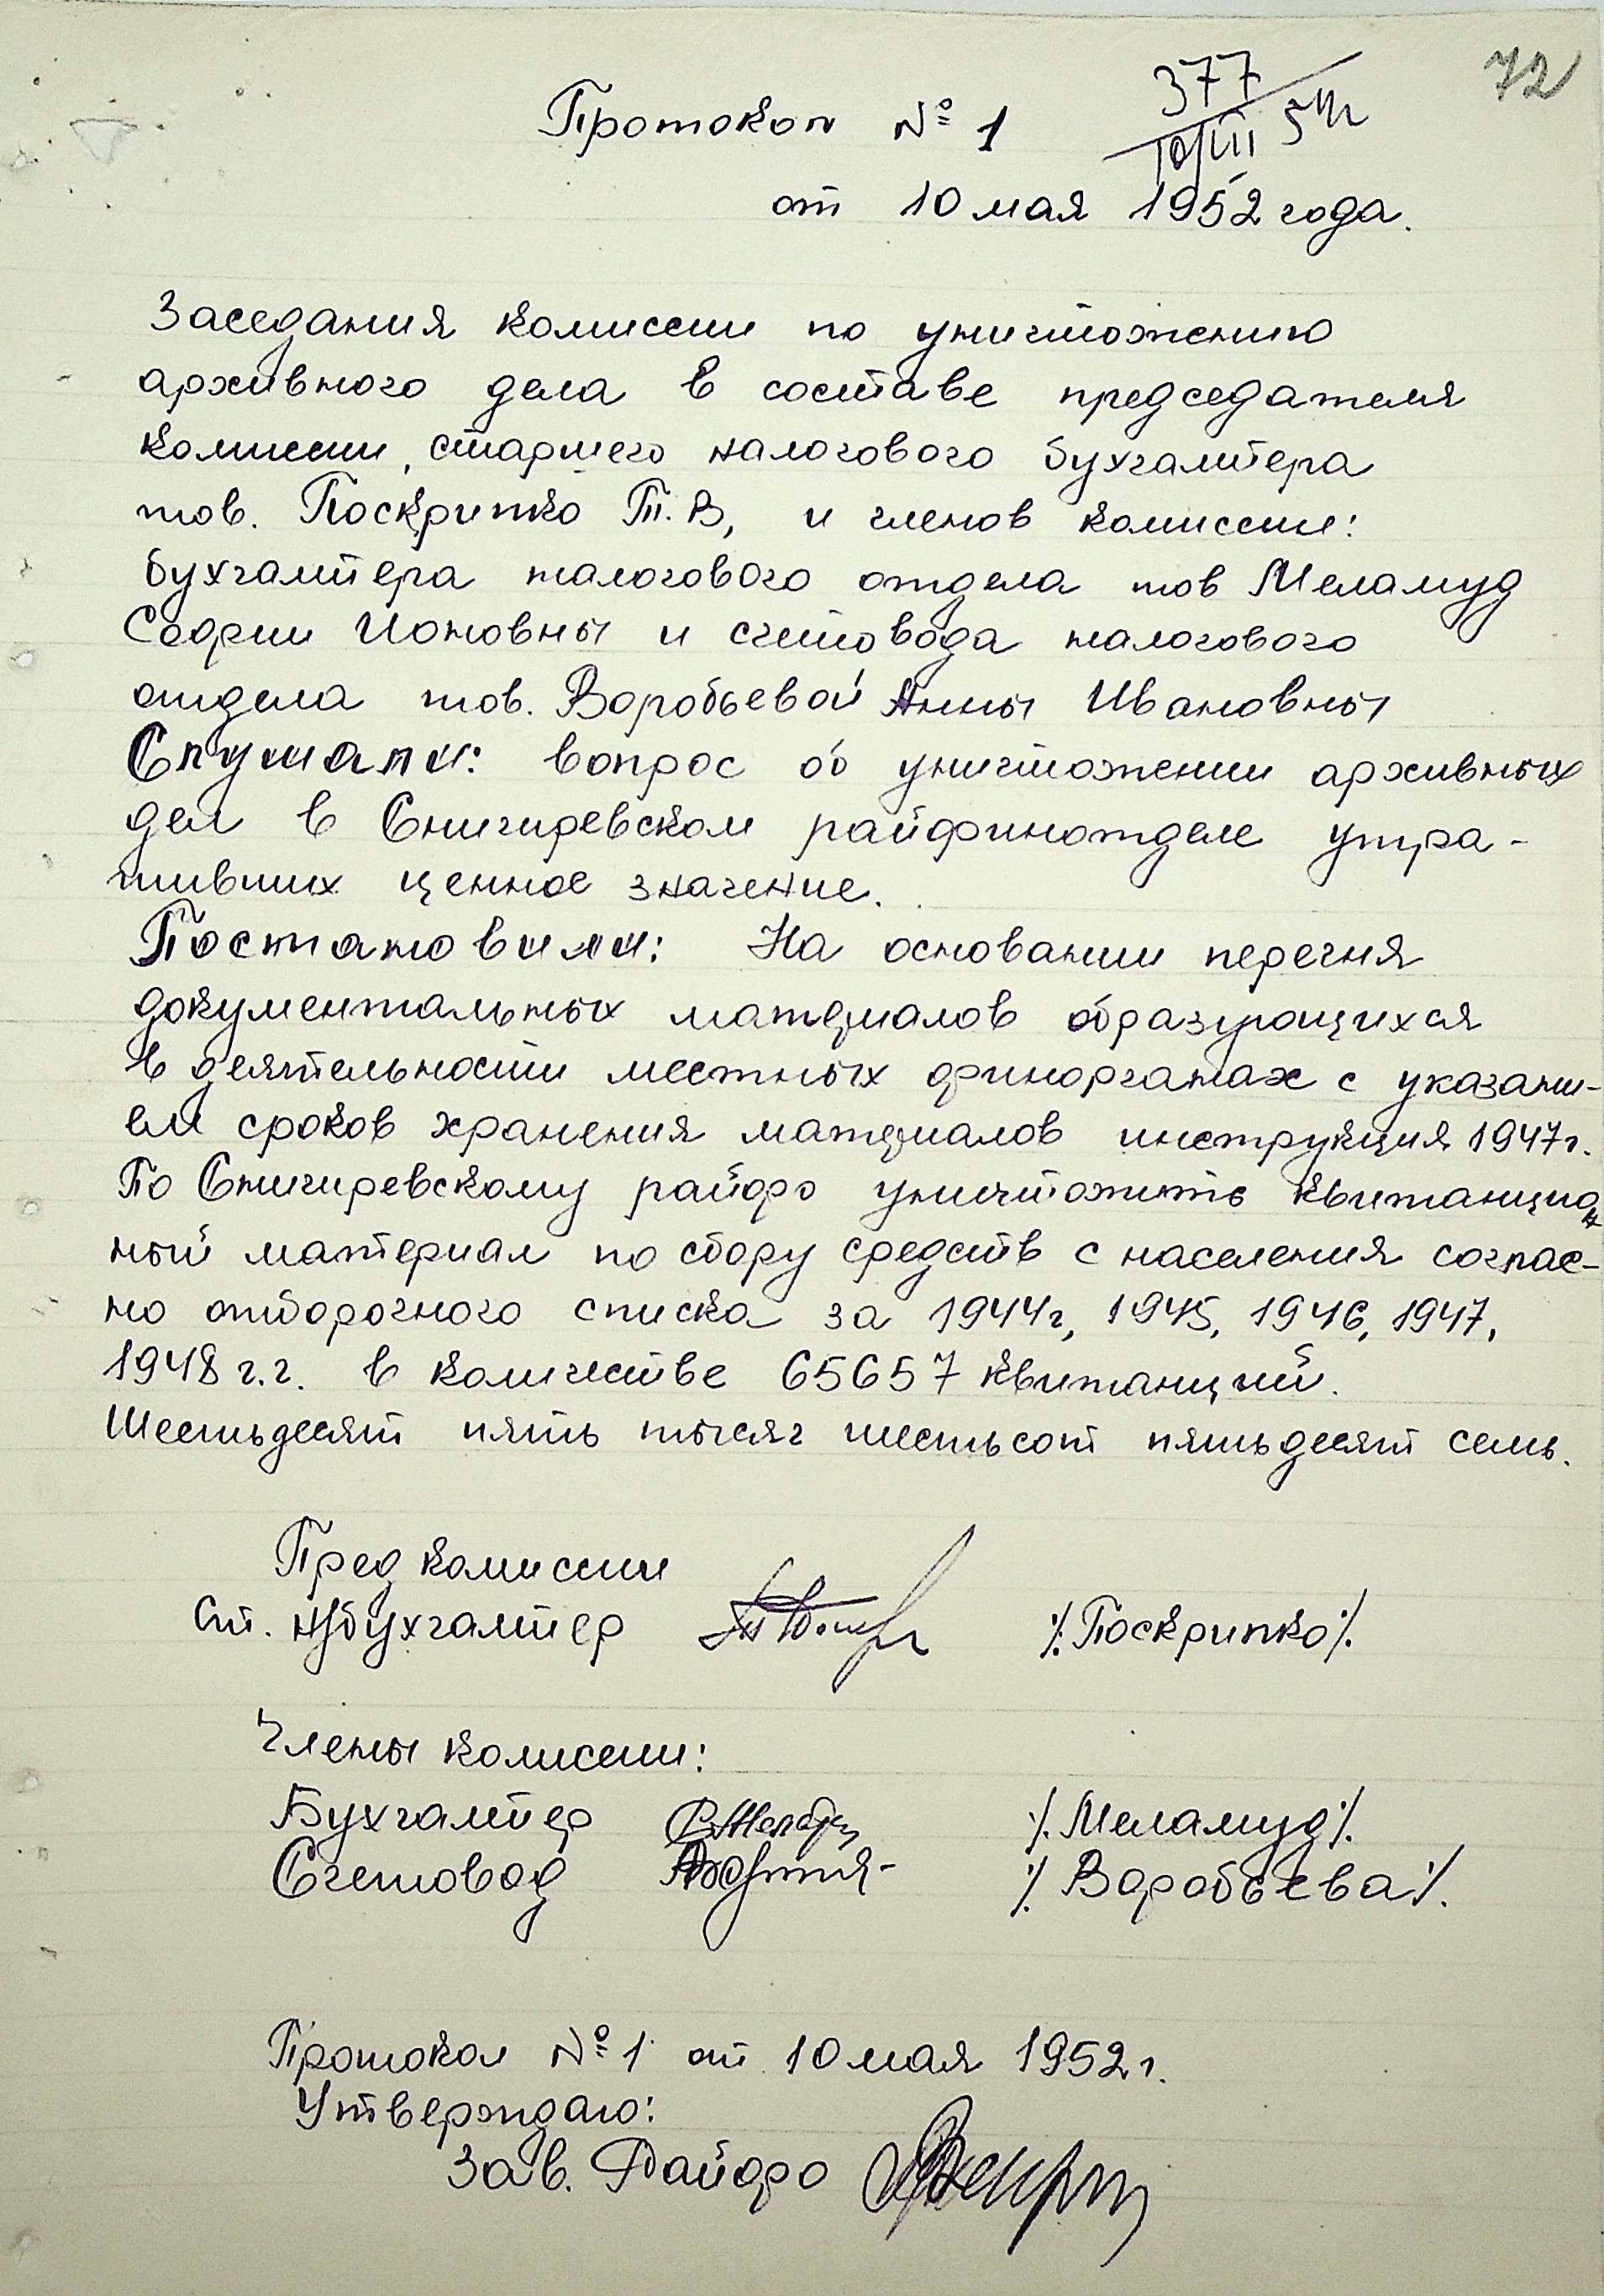 72
377
10/III 54г
Протокол № 1
от 10 мая 1952 года.
Заседания комиссии по уничтожению
архивного дела в составе председателя
комиссии, старшего налогового бухгалтера
тов. Поскрипко Т.В, и членов комиссии:
бухгалтера налогового отдела тов Меламуд
Софии Ионовны и счетовода налогового
отдела тов. Воробьевой Анны Ивановны
Слушали: вопрос об уничтожении архивных
дел в Снигиревском райфинотделе утра-
тивших ценное значение.
Постановили: На основании перечня
документальных материалов образующихся
в деятельности местных финорганах с указани-
ем сроков хранения материалов инструкция 1947г.
По Снигиревскому райфо уничтожить квитанцион
ный материал по сбору средств с населения соглас-
но отборочного списка за 1944г, 1945, 1946, 1947,
1948 г.г. в количестве 65657 квитанций.
Шестьдесят пять тысяч шестьсот пятьдесят семь.
Пред комиссии
Ст. н/бухгалтер ⁒Поскрипко⁒
Члены комиссии:
Бухгалтер ⁒Меламуд⁒
Счетовод ⁒Воробьева⁒.
Протокол № 1 от 10 мая 1952 г.
Утверждаю:
Зав. Райфо